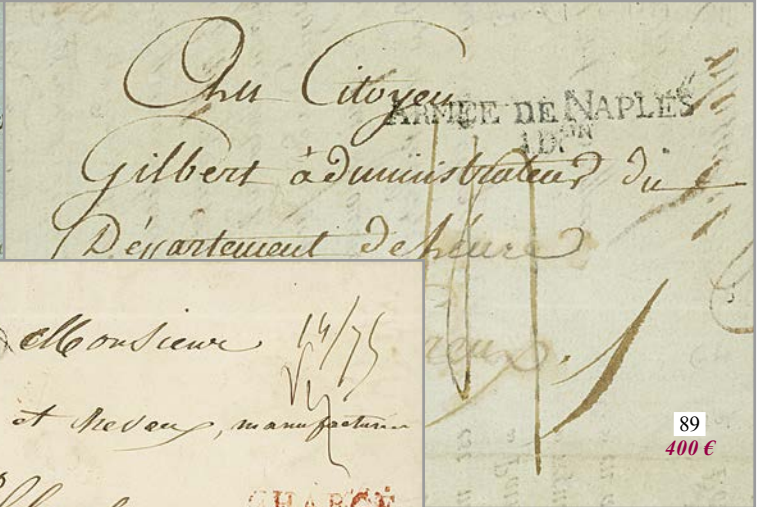 Au Citoyen
ARMÉE DE NAPLES
1 DON
Gilbert administrateur du
Département de l'eure
reux.
Monsieur
14/75
et Neveux, manufactur
CHARGÉ
89
400 €